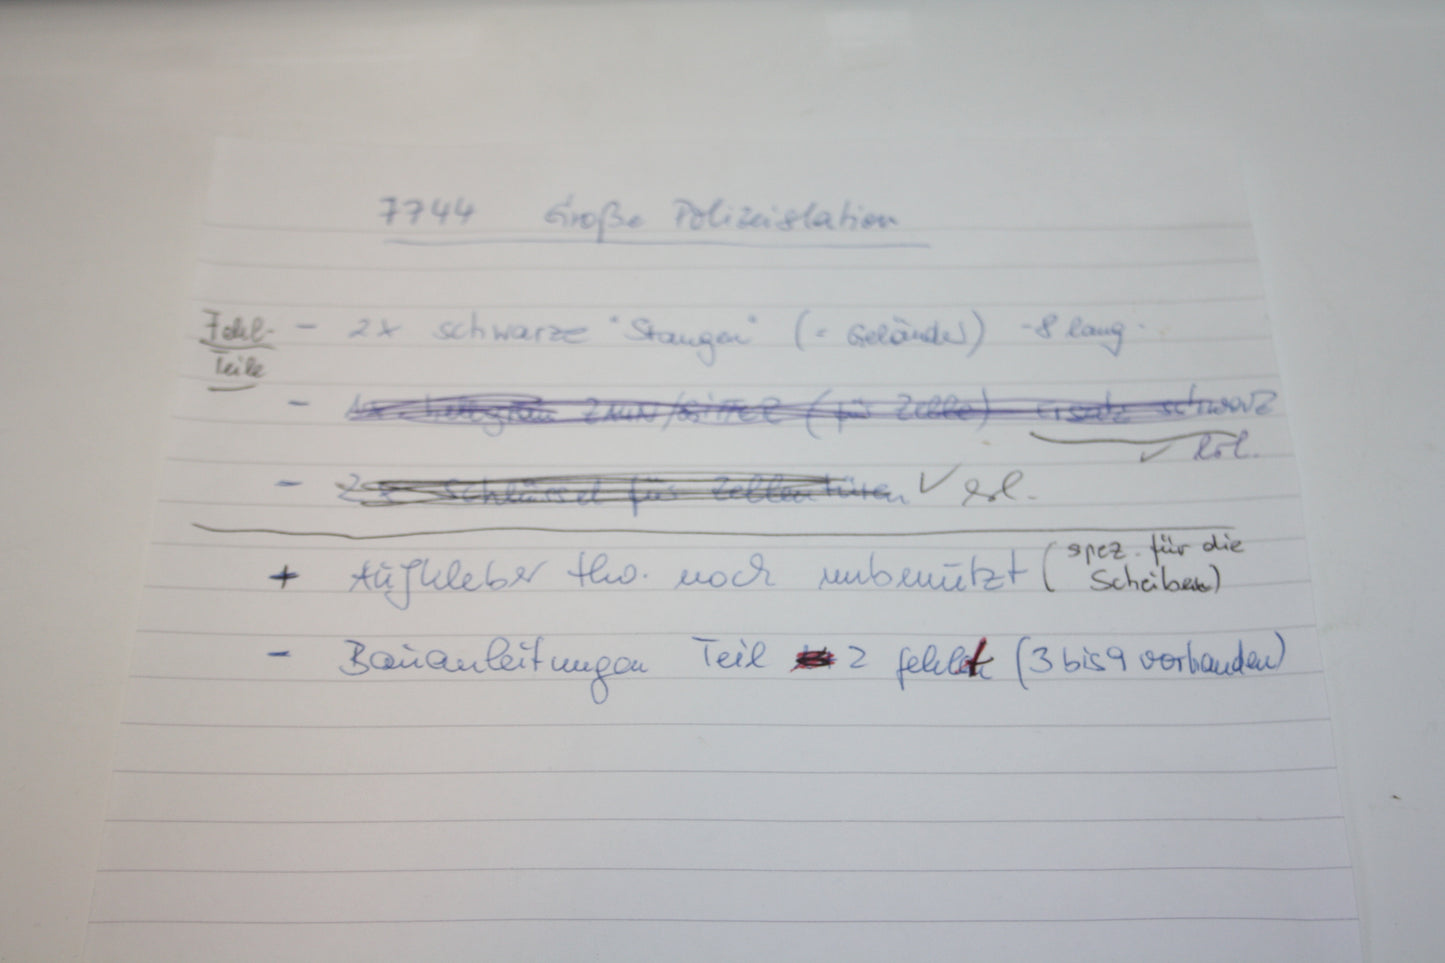 7744 Große Polizeistation
Fehl-
Teile
- 2x schwarze "Stangen" (= Geländer) - 8 lang
- 1x hellgrau (für Zelle) ersatz schwarz
✓ erl.
- 2x Schlüssel für Zellentüren ✓ erl.
+ Aufkleber tlw. noch unbenützt (spez. für die
Scheiben)
- Bauanleitungen Teil 2 fehlt (3 bis 9 vorhanden)